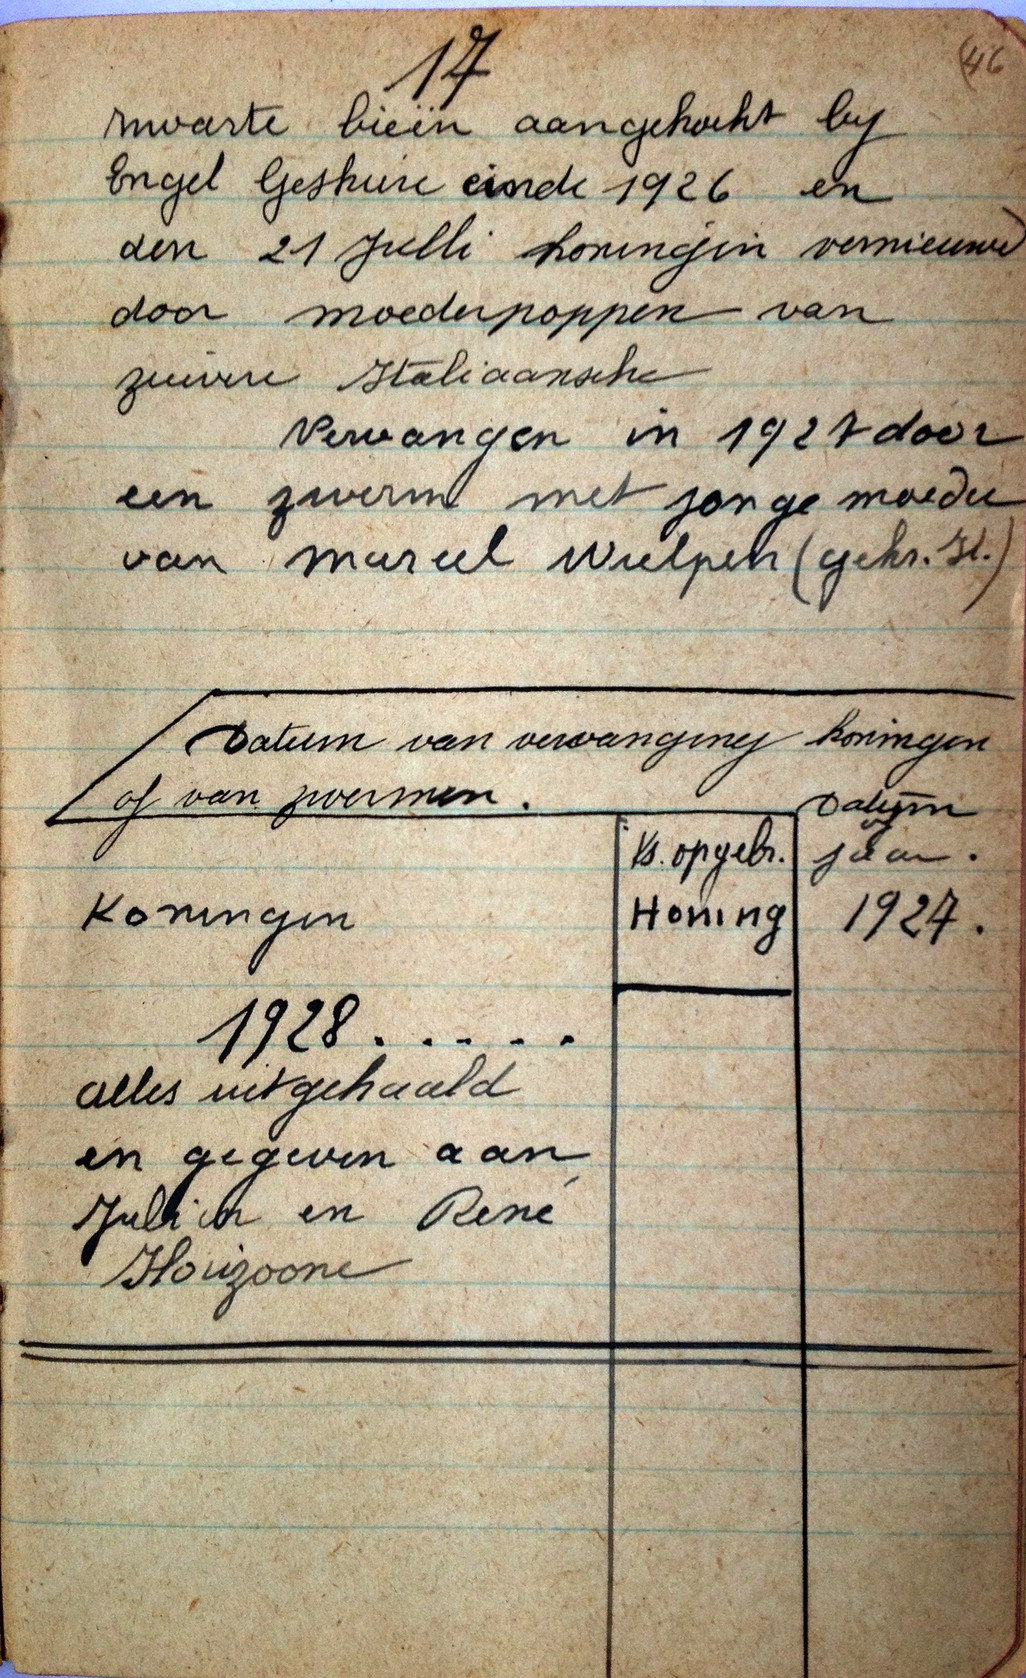 17
(46
zwarte bieën aangekocht by
Engel Geskiere einde 1926 en
den 21 Julli koningin vernieuwd
door moederpoppen van
zuivere Italiaansche
Vervangen in 1927 door
een zwerm met jonge moeder
van Marcel Wulpen (gekr. It.)
Datum van vervanging koningen
of van zwermen.
Datum
of
Ks. opgebr. jaar.
Koningen Honing 1927.
1928......
alles uitgehaald
en gegeven aan
Julien en René
Houzoone